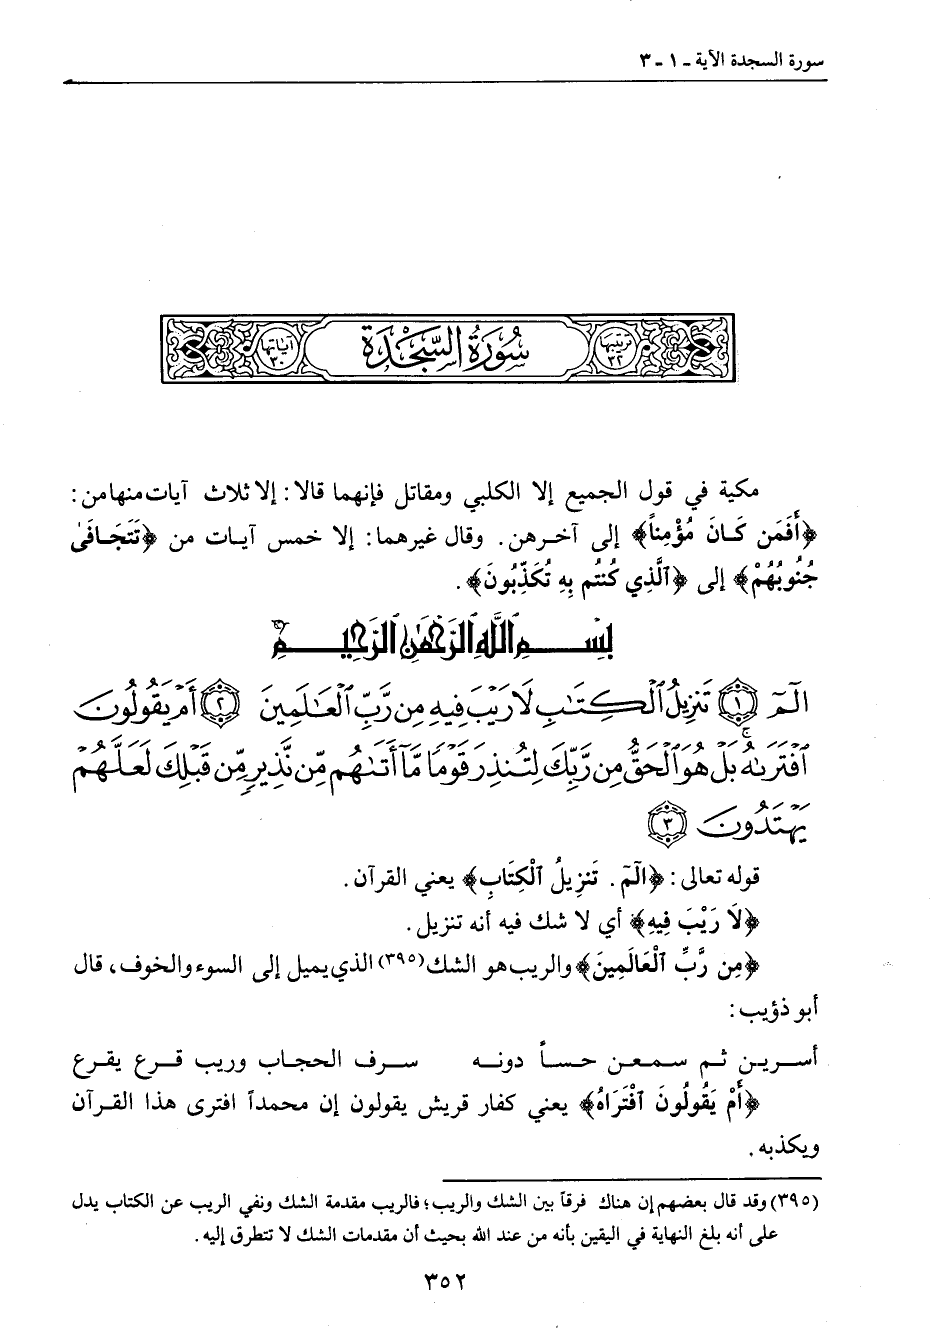 سورة السجدة الآية ـ ١ ـ ٣
ترتيبها ٣٢ سُورَةُ السَّجْدَة آياتها ٣٠
مكية في قول الجميع إلا الكلبي ومقاتل فإنهما قالا: إلا ثلاث آيات منها من:
﴿أَفَمَن كَـانَ مُؤْمِناً﴾ إلى آخرهن. وقال غيرهما: إلا خمس آيـات من ﴿تَتَجَـافَىٰ
جُنُوبُهُمْ﴾ إلى ﴿ٱلَّذِي كُنتُم بِهِ تُكَذِّبُونَ﴾.
بِسْمِ اللَّهِ الرَّحْمَٰنِ الرَّحِيمِ
الٓمٓ ١ تَنزِيلُ ٱلْكِتَٰبِ لَا رَيْبَ فِيهِ مِن رَّبِّ ٱلْعَٰلَمِينَ ٢ أَمْ يَقُولُونَ
ٱفْتَرَىٰهُ ۚ بَلْ هُوَ ٱلْحَقُّ مِن رَّبِّكَ لِتُنذِرَ قَوْمًا مَّآ أَتَىٰهُم مِّن نَّذِيرٍ مِّن قَبْلِكَ لَعَلَّهُمْ
يَهْتَدُونَ ٣
قوله تعالى: ﴿الٓمٓ. تَنزِيلُ ٱلْكِتَابِ﴾ يعني القرآن.
﴿لَا رَيْبَ فِيهِ﴾ أي لا شك فيه أنه تنزيل.
﴿مِن رَّبِّ ٱلْعَالَمِينَ﴾ والريب هو الشك (٣٩٥) الذي يميل إلى السوء والخوف، قال
أبو ذؤيب:
أسـرين ثـم سـمعـن حـسـاً دونـه سـرف الحجـاب وريب قـرع يقـرع
﴿أَمْ يَقُولُونَ ٱفْتَرَاهُ﴾ يعني كفار قريش يقولون إن محمداً افترى هذا القـرآن
ويكذبه.
(٣٩٥) وقد قال بعضهم إن هناك فرقاً بين الشك والريب؛ فالريب مقدمة الشك ونفي الريب عن الكتاب يدل
على أنه بلغ النهاية في اليقين بأنه من عند الله بحيث أن مقدمات الشك لا تتطرق إليه.
٣٥٢